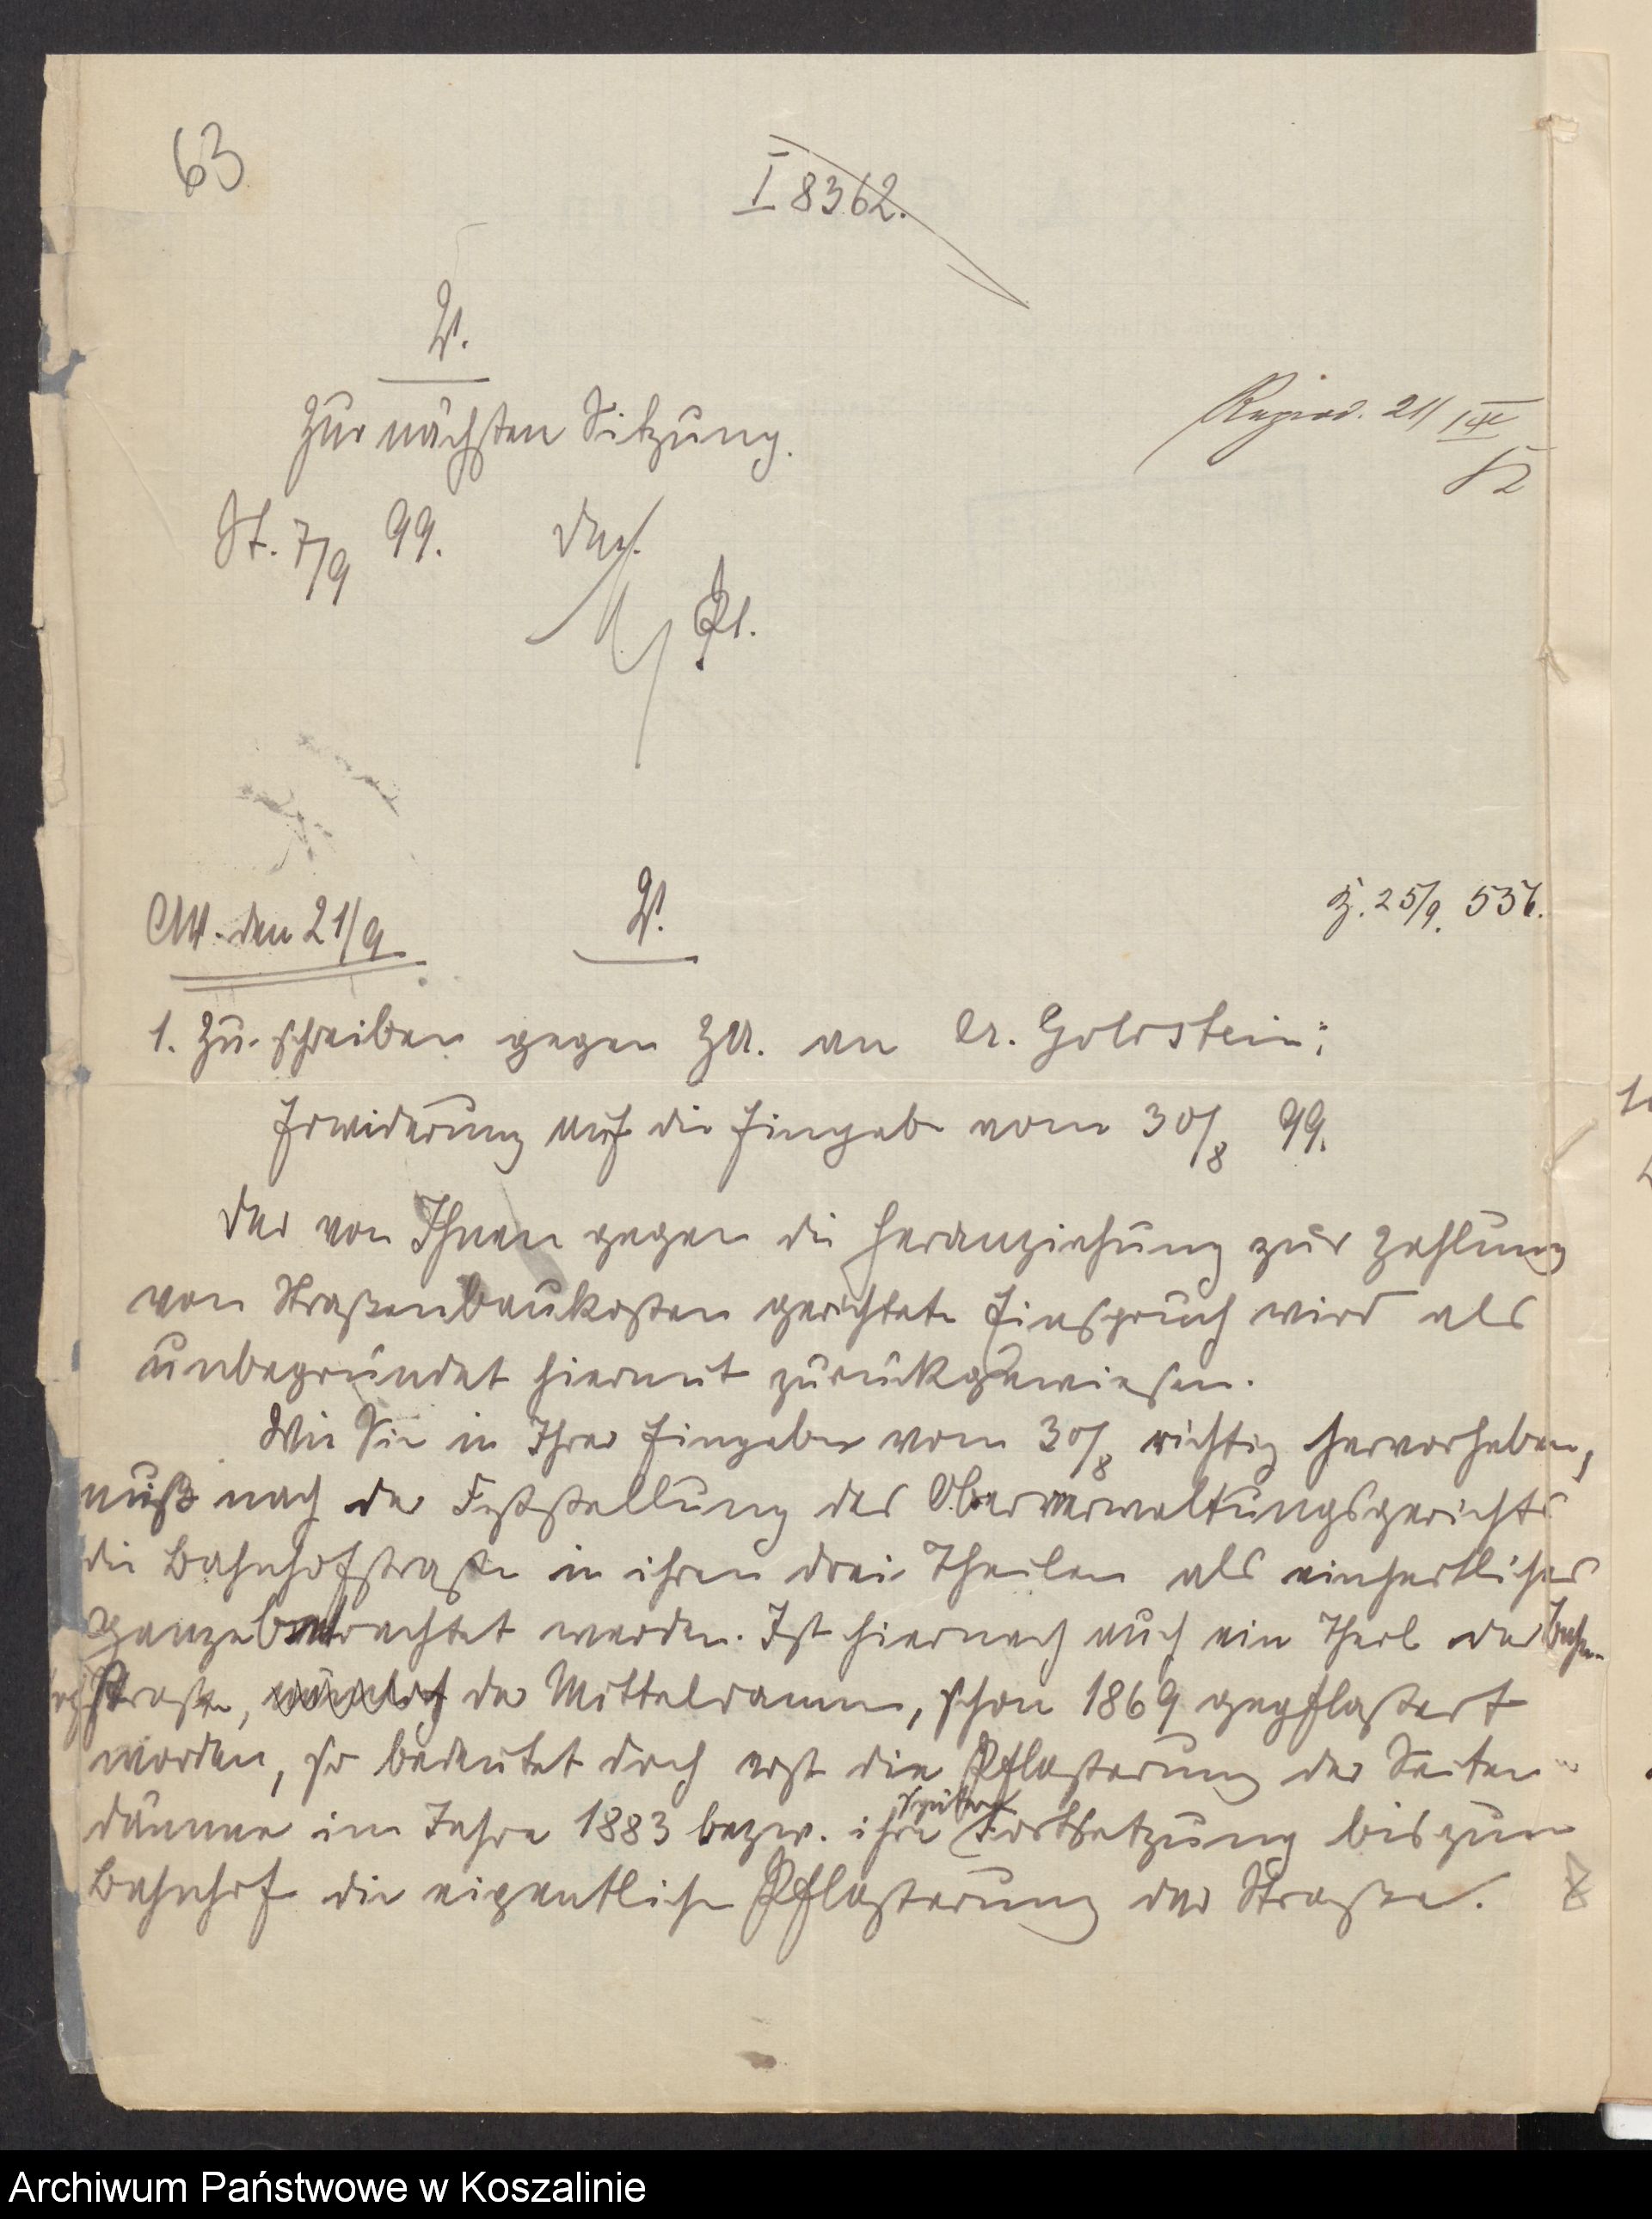 63
I 8362.
V.
Zur nächsten Sitzung.
St. 7/9 99. Der
Reprod. 21/IX
V.
den 21/9
25/9. 536.
1. Zu schreiben gegen ZU. an Dr. Goldstein:
Erwiderung auf die Eingabe vom 30/8 99.
Der von Ihnen gegen die Heranziehung zur Zahlung
von Straßenbaukosten gerichtete Einspruch wird als
unbegründet hiermit zurückgewiesen.
Wie Sie in Ihrer Eingabe vom 30/8 richtig hervorheben,
muß nach der Feststellung des Oberverwaltungsgerichts
die Bahnhofstraße in ihren drei Theilen als einheitliches
Ganze betrachtet werden. Ist hiernach auch ein Theil der Bahn-
hofstraße, nämlich der Mitteldamm, schon 1869 gepflastert
worden, so bedeutet doch erst die Pflasterung der Seiten
dämme im Jahre 1883 bezw. ihre spätere Fortsetzung bis zum
Bahnhof die eigentliche Pflasterung der Straße.
Archiwum Państwowe w Koszalinie